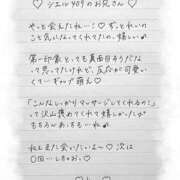 ♡ シエル409のお兄さん ♡
やっと会えたねー！♡ ずっとれいの
こと気になってくれてたの、嬉しい
第一印象とっても真面目そうだな
って思ってたけど、反応が可愛い
くてーギャップ萌え♡
「こんなしっかりマッサージしてくれるの！」
って沢山褒めてくれて嬉しかったが
もちろんあっちもーれ
ねえまた会いたいよー♡ 次は
〇回…しちゃお。♡